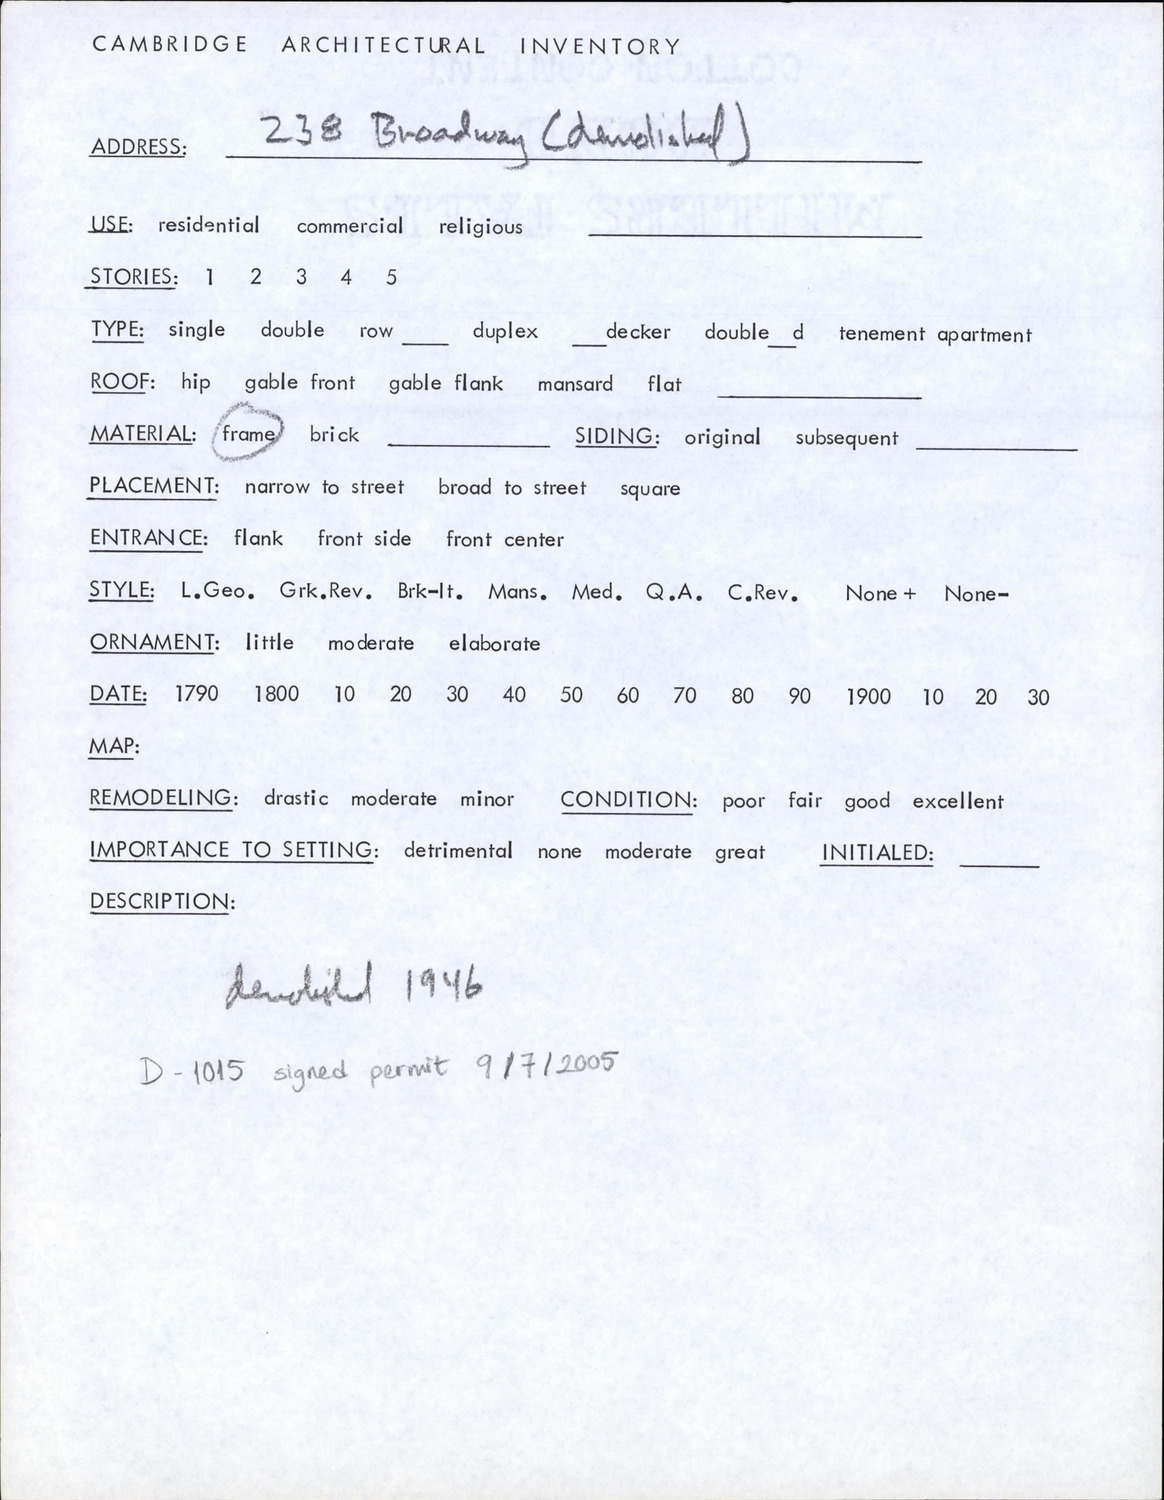 CAMBRIDGE ARCHITECTURAL INVENTORY
ADDRESS: 238 Broadway (demolished)
USE: residential commercial religious
STORIES: 1 2 3 4 5
TYPE: single double row ___ duplex ___decker double__d tenement apartment
ROOF: hip gable front gable flank mansard flat
MATERIAL: frame brick SIDING: original subsequent
PLACEMENT: narrow to street broad to street square
ENTRANCE: flank front side front center
STYLE: L.Geo. Grk.Rev. Brk-It. Mans. Med. Q.A. C.Rev. None+ None-
ORNAMENT: little moderate elaborate
DATE: 1790 1800 10 20 30 40 50 60 70 80 90 1900 10 20 30
MAP:
REMODELING: drastic moderate minor CONDITION: poor fair good excellent
IMPORTANCE TO SETTING: detrimental none moderate great INITIALED:
DESCRIPTION:
demolished 1946
D-1015 signed permit 9/7/2005